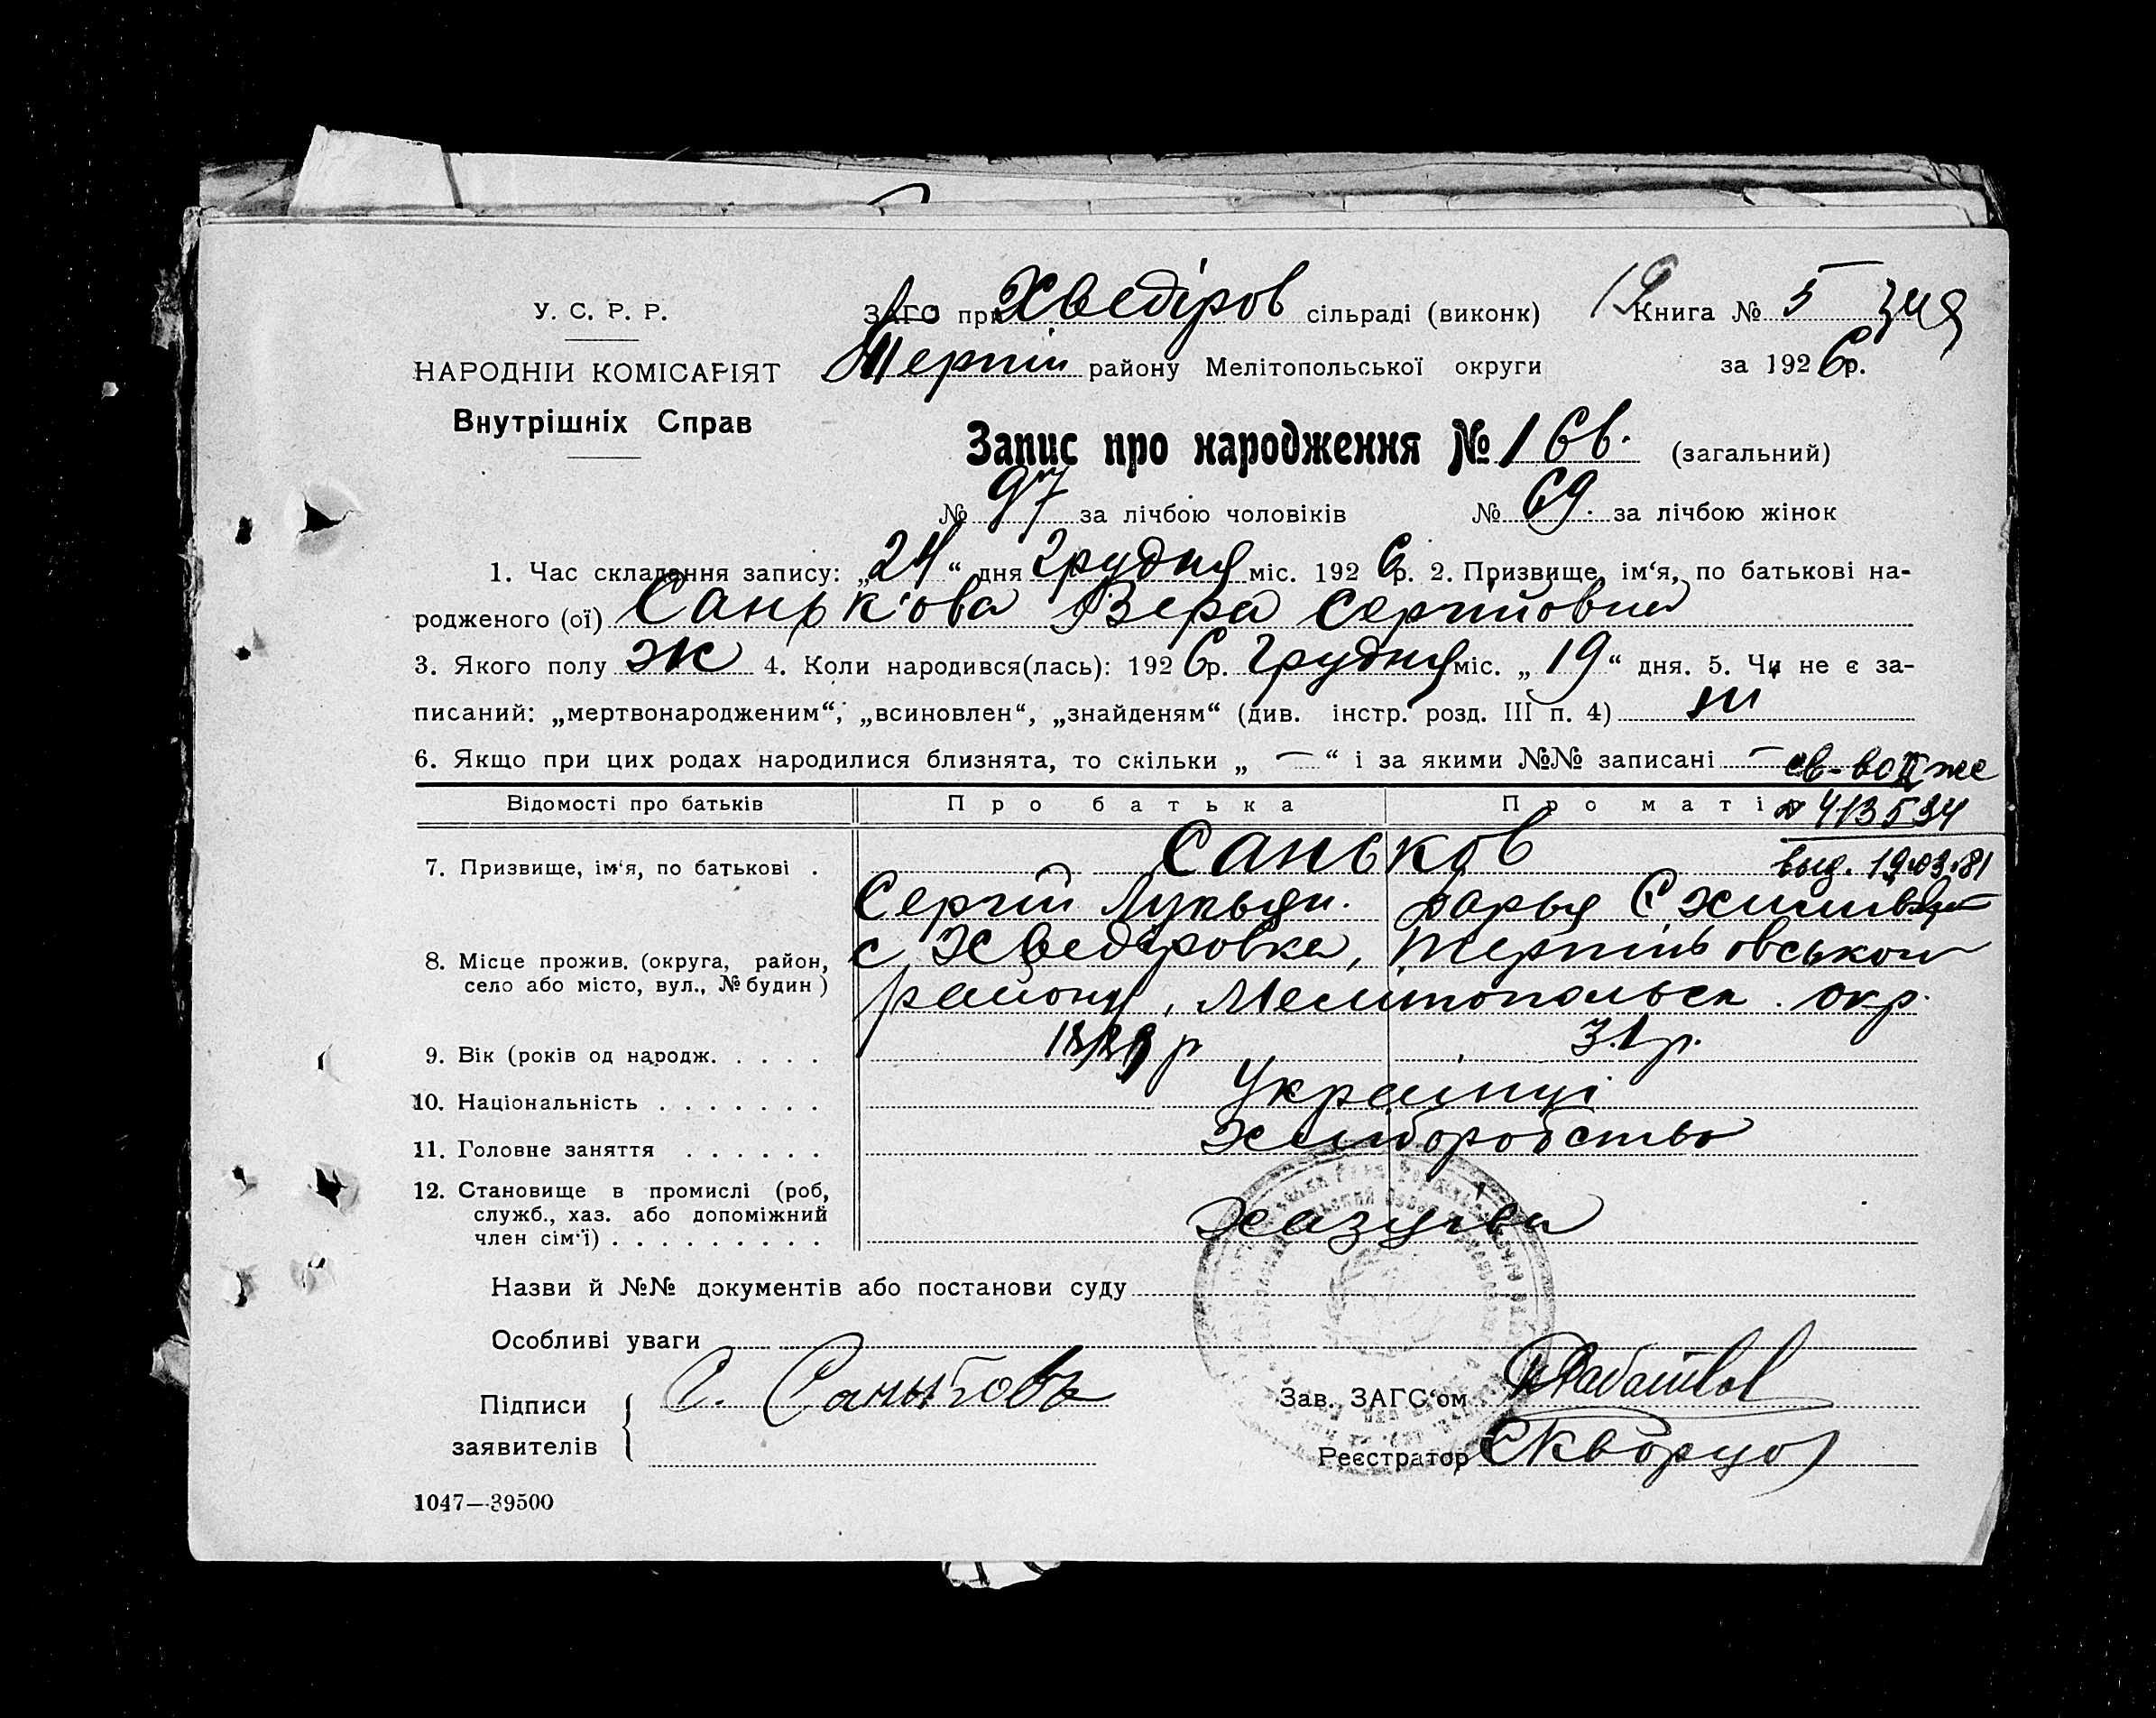 У. С. Р. Р.
НАРОДНІЙ КОМІСАРІЯТ
Внутрішніх Справ
ЗАГС при Хведіров сільраді (виконк) Книга № 5
Терпін району Мелітопольської округи за 1926 р.
Запис про народження № 166. (загальний)
№ 97 за лічбою чоловіків № 69. за лічбою жінок
1. Час складання запису: „24“ дня Грудня міс. 1926 р. 2. Призвище, ім'я, по батькові на-
родженого (ої) Санькова Вера Сергійовна
3. Якого полу ж 4. Коли народився(лась): 1926 р. Грудня міс. „19“ дня. 5. Чи не є за-
писаний: „мертвонародженим“, „всиновлен“, „знайденям“ (див. інстр. розд. III п. 4) ні
6. Якщо при цих родах народилися близнята, то скільки „—“ і за якими №№ записані —
св-во II же
№ 413534
выд. 19.03.81
Відомості про батьків Про батька Про матір
7. Призвище, ім'я, по батькові . Саньков
Сергій Лукьян. Дарья
8. Місце прожив. (округа, район, село або місто, вул., № будин) с Хведіровка, Терпіньовського
району, Мелитопольск. окр.
9. Вік (років од народж. . . . . р 31 р.
10. Національність . . . . . . . Украинці
11. Головне заняття . . . . . . Хліборобство
12. Становище в промислі (роб,
служб., хаз. або допоміжний
член сім'ї) . . . . . . . . . Хазуіва
Назви й №№ документів або постанови суду
Особливі уваги
Підписи заявителів С. Саньковъ
Зав. ЗАГС'ом
Реєстратор Скворцов
1047—39500